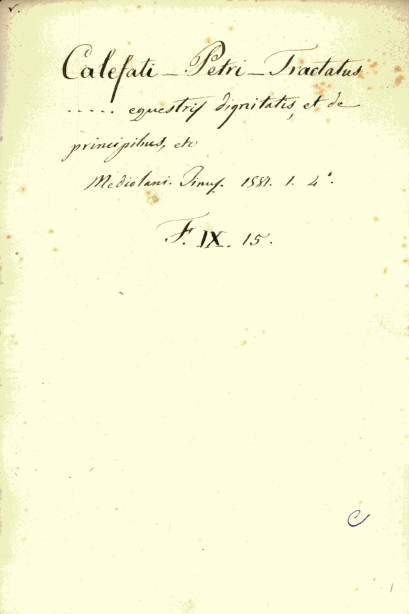 v.
Calefati – Petri – Tractatus
..... equestris dignitatis, et de
principibus, etc
Mediolani. 1581. 1. 4°.
F. IX. 15.
C